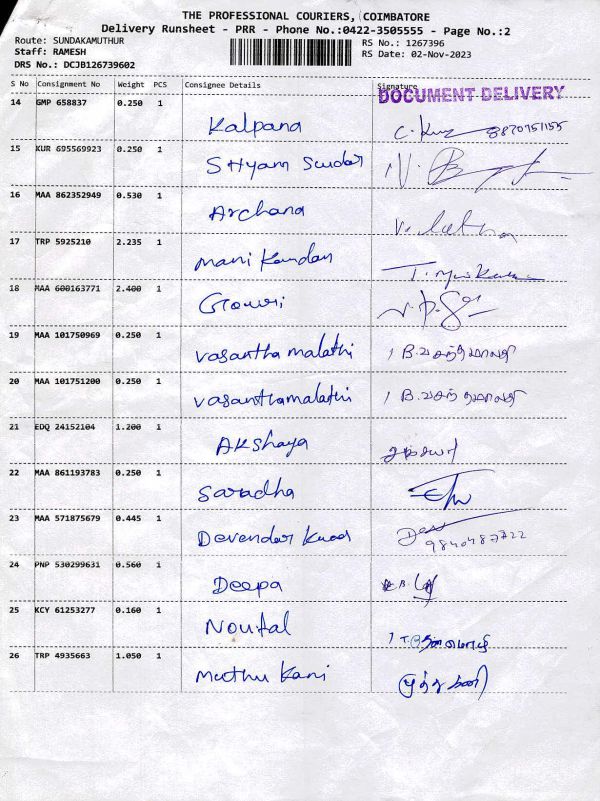 THE PROFESSIONAL COURIERS, COIMBATORE
Delivery Runsheet - PRR - Phone No.:0422-3505555 - Page No.:2
Route: SUNDAKAMUTHUR
Staff: RAMESH
DRS No.: DCJB126739602
RS No.: 1267396
RS Date: 02-Nov-2023
S No Consignment No Weight PCS Consignee Details Signature
DOCUMENT DELIVERY
14 GMP 658837 0.250 1 Kalpana 8870751155
15 KUR 695569923 0.250 1 Shyam Sundar
16 MAA 862352949 0.530 1 Archana V. Latha
17 TRP 5925210 2.235 1 Mani Kandan
18 MAA 600163771 2.400 1 Gowri
19 MAA 101750969 0.250 1 Vasantha malathi B. வசந்தமாலதி
20 MAA 101751200 0.250 1 Vasanthamalathi B. வசந்தமாலதி
21 EDQ 24152104 1.200 1 Akshaya
22 MAA 861193783 0.250 1 Saradha
23 MAA 571875679 0.445 1 Devendar 9840487722
24 PNP 530299631 0.560 1 Deepa
25 KCY 61253277 0.160 1
26 TRP 4935663 1.050 1 Muthu Kani முத்துகனி